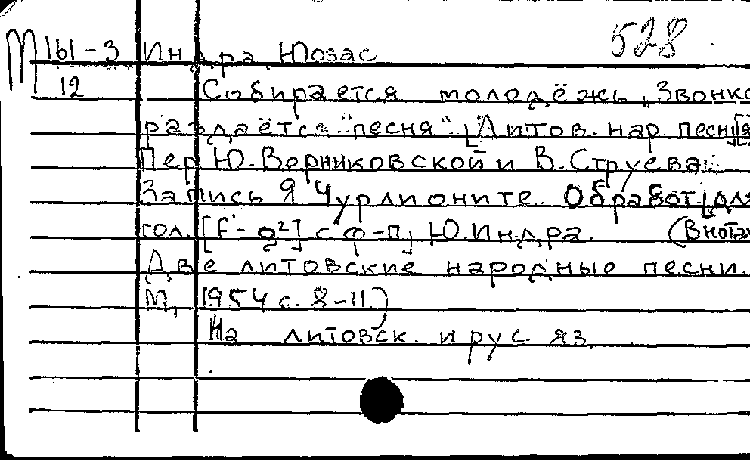 528
М 161-3 Индра Юозас
12 Собирается молодёжь, Звонко
раздаётся "песня". [Литов. нар. песня]
Пер Ю. Верниковской и В. Струева.
Запись Я Чурлионите. Обработ. для
гол. [f - g²] с ф-п, Ю. Индра. (В нотах
Две литовские народные песни.
М, 1954 с. 8-11.)
На литовск. и рус яз.